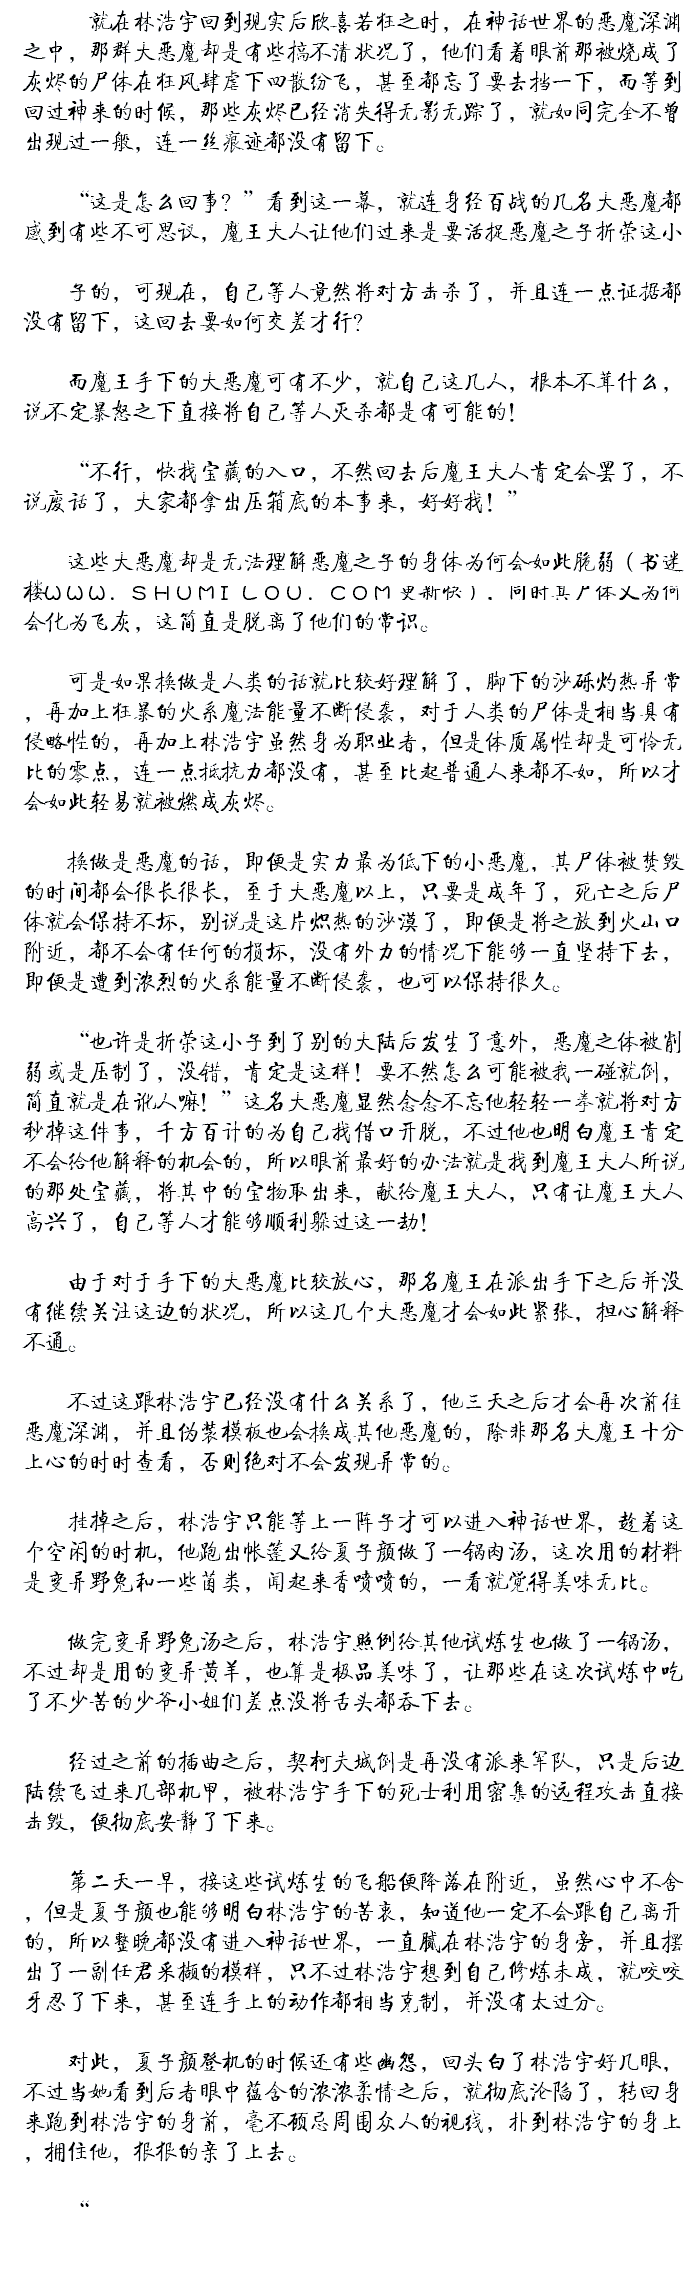 就在林浩宇回到现实后欣喜若狂之时，在神话世界的恶魔深渊
之中，那群大恶魔却是有些搞不清状况了，他们看着眼前那被烧成了
灰烬的尸体在狂风肆虐下四散纷飞，甚至都忘了要去挡一下，而等到
回过神来的时候，那些灰烬已经消失得无影无踪了，就如同完全不曾
出现过一般，连一丝痕迹都没有留下。
“这是怎么回事？”看到这一幕，就连身经百战的几名大恶魔都
感到有些不可思议，魔王大人让他们过来是要活捉恶魔之子折荣这小
子的，可现在，自己等人竟然将对方击杀了，并且连一点证据都
没有留下，这回去要如何交差才行？
而魔王手下的大恶魔可有不少，就自己这几人，根本不算什么，
说不定暴怒之下直接将自己等人灭杀都是有可能的！
“不行，快找宝藏的入口，不然回去后魔王大人肯定会罢了，不
说废话了，大家都拿出压箱底的本事来，好好找！”
这些大恶魔却是无法理解恶魔之子的身体为何会如此脆弱（书迷
楼ＷＷＷ．ＳＨＵＭＩＬＯＵ．ＣＯＭ更新快），同时其尸体又为何
会化为飞灰，这简直是脱离了他们的常识。
可是如果换做是人类的话就比较好理解了，脚下的沙砾灼热异常
，再加上狂暴的火系魔法能量不断侵袭，对于人类的尸体是相当具有
侵略性的，再加上林浩宇虽然身为职业者，但是体质属性却是可怜无
比的零点，连一点抵抗力都没有，甚至比起普通人来都不如，所以才
会如此轻易就被燃成灰烬。
换做是恶魔的话，即便是实力最为低下的小恶魔，其尸体被焚毁
的时间都会很长很长，至于大恶魔以上，只要是成年了，死亡之后尸
体就会保持不坏，别说是这片炽热的沙漠了，即便是将之放到火山口
附近，都不会有任何的损坏，没有外力的情况下能够一直坚持下去，
即便是遭到浓烈的火系能量不断侵袭，也可以保持很久。
“也许是折荣这小子到了别的大陆后发生了意外，恶魔之体被削
弱或是压制了，没错，肯定是这样！要不然怎么可能被我一碰就倒，
简直就是在讹人嘛！”这名大恶魔显然念念不忘他轻轻一拳就将对方
秒掉这件事，千方百计的为自己找借口开脱，不过他也明白魔王肯定
不会给他解释的机会的，所以眼前最好的办法就是找到魔王大人所说
的那处宝藏，将其中的宝物取出来，献给魔王大人，只有让魔王大人
高兴了，自己等人才能够顺利躲过这一劫！
由于对于手下的大恶魔比较放心，那名魔王在派出手下之后并没
有继续关注这边的状况，所以这几个大恶魔才会如此紧张，担心解释
不通。
不过这跟林浩宇已经没有什么关系了，他三天之后才会再次前往
恶魔深渊，并且伪装模板也会换成其他恶魔的，除非那名大魔王十分
上心的时时查看，否则绝对不会发现异常的。
挂掉之后，林浩宇只能等上一阵子才可以进入神话世界，趁着这
个空闲的时机，他跑出帐篷又给夏子颜做了一锅肉汤，这次用的材料
是变异野兔和一些菌类，闻起来香喷喷的，一看就觉得美味无比。
做完变异野兔汤之后，林浩宇照例给其他试炼生也做了一锅汤，
不过却是用的变异黄羊，也算是极品美味了，让那些在这次试炼中吃
了不少苦的少爷小姐们差点没将舌头都吞下去。
经过之前的插曲之后，契柯夫城倒是再没有派来军队，只是后边
陆续飞过来几部机甲，被林浩宇手下的死士利用密集的远程攻击直接
击毁，便彻底安静了下来。
第二天一早，接这些试炼生的飞船便降落在附近，虽然心中不舍
，但是夏子颜也能够明白林浩宇的苦衷，知道他一定不会跟自己离开
的，所以整晚都没有进入神话世界，一直腻在林浩宇的身旁，并且摆
出了一副任君采撷的模样，只不过林浩宇想到自己修炼未成，就咬咬
牙忍了下来，甚至连手上的动作都相当克制，并没有太过分。
对此，夏子颜登机的时候还有些幽怨，回头白了林浩宇好几眼，
不过当她看到后者眼中蕴含的浓浓柔情之后，就彻底沦陷了，转回身
来跑到林浩宇的身前，毫不顾忌周围众人的视线，扑到林浩宇的身上
，拥住他，狠狠的亲了上去。
“